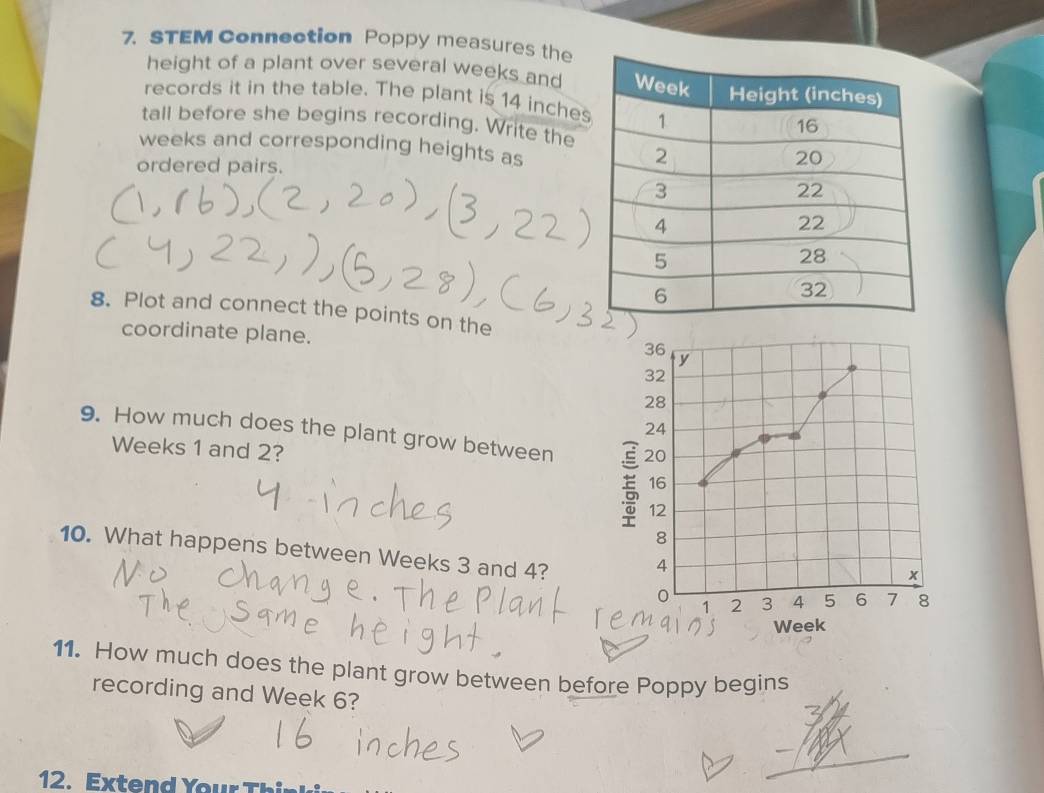 7. STEM Connection Poppy measures the
height of a plant over several weeks and
records it in the table. The plant is 14 inches
tall before she begins recording. Write the
weeks and corresponding heights as
ordered pairs.
(1,16),(2,20),(3,22)
(4,22,),(5,28),(6,32)
Week Height (inches)
1 16
2 20
3 22
4 22
5 28
6 32
8. Plot and connect the points on the
coordinate plane.
36
y
32
28
24
20
16
12
8
4
0
x
1 2 3 4 5 6 7 8
Height (in.)
Week
9. How much does the plant grow between
Weeks 1 and 2?
4 inches
10. What happens between Weeks 3 and 4?
No change. The Plant remains
The same height.
11. How much does the plant grow between before Poppy begins
recording and Week 6?
16 inches
12. Extend Your